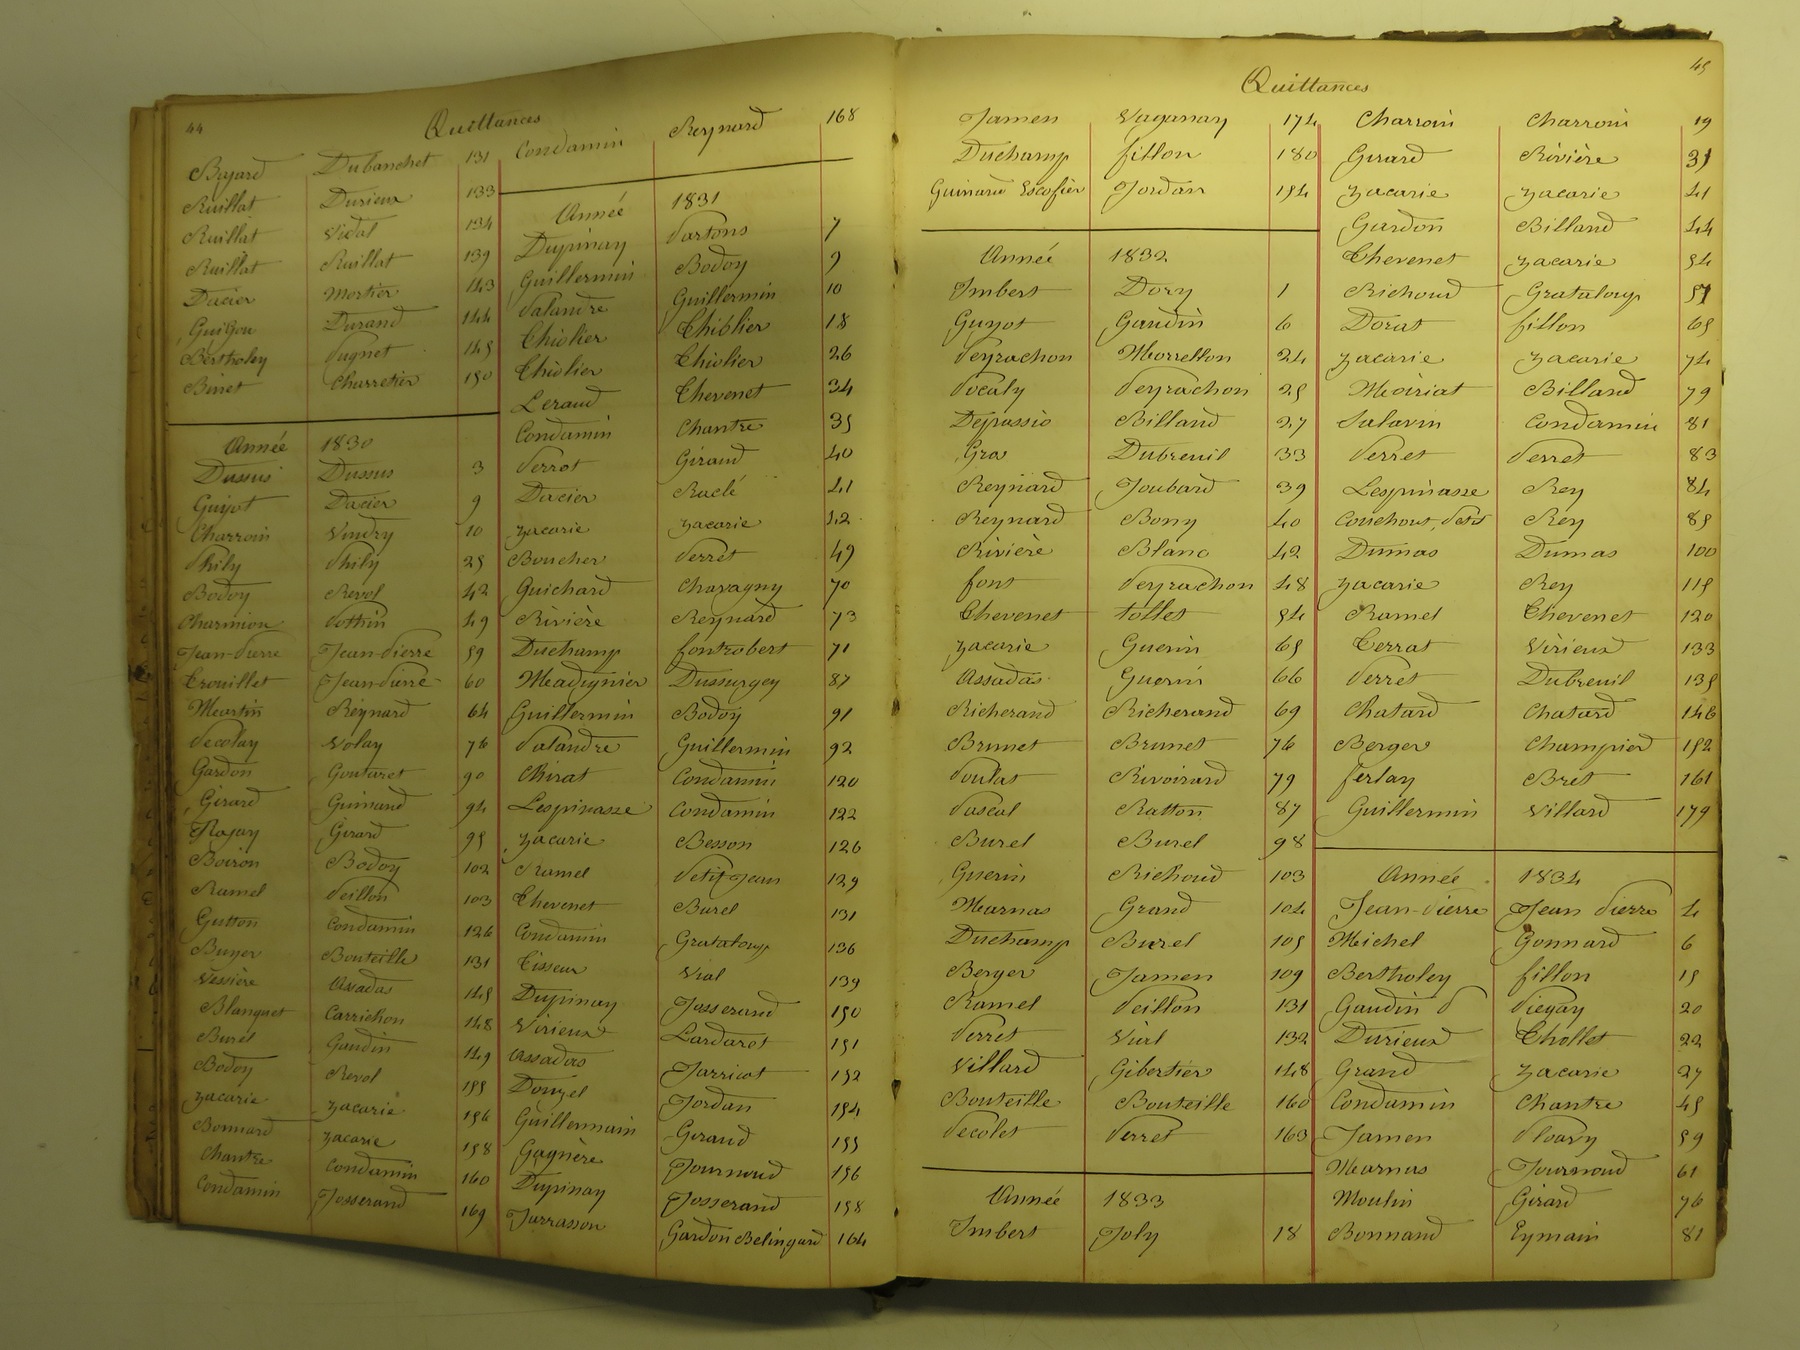 44
Quittances
Bryard Dubanchet 131
Ruillat Durieux 133
Ruillat Vidal 134
Ruillat Ruillat 139
Dacier Mortier 143
Guigou Durand 144
Bertholey Pugnet 145
Binet Charretier 150
Année 1830
Dussus Dussus 3
Guyot Dacier 9
Charroin Vindry 10
Phily Phily 25
Bodoy Revol 42
Charmion Pothin 49
Jean-Pierre Jean-Pierre 59
Trouillet Jean-Pierre 60
Martin Reynard 64
Pecolay Volay 76
Gardon Goutaret 90
Girard Guinand 94
Rajay Girard 95
Boiron Bodoy 102
Ramel Peillon 103
Gutton Condamin 126
Buyer Bouteille 131
Vessière Assadas 145
Blanquet Carrichon 148
Burel Gaudin 149
Bodoy Revol 155
Zacarie Zacarie 156
Bonnard Zacarie 158
Chantre Condamin 160
Condamin Josserand 169
Condamin Reynard 168
Année 1831
Dupinay Partons 7
Guillermin Bodoy 9
Palandre Guillermin 10
Thiolier Thiblier 18
Thiolier Thiolier 26
Leraud Chevenet 34
Condamin Chantre 35
Perrot Giraud 40
Dacier Raclé 41
Zacarie Zacarie 42
Boucher Perret 49
Guichard Chavagny 70
Rivière Reynard 73
Duchamp fontrobert 71
Madignier Dussurgey 87
Guillermin Bodoy 91
Palandre Guillermin 92
Chirat Condamin 120
Lespinasse Condamin 122
Zacarie Besson 126
Ramel Petit Jean 129
Chevenet Burel 131
Condamin Grataloup 136
Tisseur Vial 139
Dupinay Josserand 150
Virieux Lardaret 151
Assadas Jarricot 152
Douzel Jordan 154
Guillermain Giraud 155
Gagnère Journoud 156
Dupinay Josserand 158
Jarrasson Gardon Belingard 164
45
Quittances
Jamen Vaganay 174
Duchamp fillon 180
Guinand Escofier Jordan 184
Année 1832
Imbert Dory 1
Guyot Gaudin 6
Peyrachon Morrellon 24
Pocaly Peyrachon 25
Dejrassio Billand 27
Gras Dubreuil 33
Reynard Joubard 39
Reynard Bony 40
Rivière Blanc 42
font Peyrachon 48
Chevenet tollet 54
Zacarie Guerin 65
Assadas Guerin 66
Richerand Richerand 69
Brunet Brunet 76
Poulat Rivoirard 79
Pascal Ratton 87
Burel Burel 98
Guerin Richoud 103
Marnas Grand 104
Duchamp Burel 105
Berger Jamen 109
Ramel Peillon 131
Perret Vial 132
Villard Gibertier 148
Bouteille Bouteille 160
Pecolet Perret 163
Année 1833
Imbert Joly 18
Charroin Charroin 19
Girard Rivière 31
Zacarie Zacarie 41
Gardon Billand 44
Chevenet Zacarie 54
Richoud Grataloup 57
Dorat fillon 65
Zacarie Zacarie 74
Moiriat Billand 79
Salavin Condamin 81
Perret Perret 83
Lespinasse Rey 84
Couchout, Petit Rey 85
Dumas Dumas 100
Zacarie Rey 115
Ramel Chevenet 120
Terrat Virieux 133
Perret Dubreuil 135
Chatard Chatard 146
Berger Champier 152
ferlay Bret 161
Guillermin Villard 179
Année 1834
Jean-Pierre Jean Pierre 4
Michel Gonnard 6
Bertholey fillon 15
Gaudin P Piegay 20
Durieux Thollet 22
Grand Zacarie 27
Condamin Chantre 45
Jamen Ploavy 59
Marnas Journoud 61
Moulin Girard 76
Bonnand Eymain 81